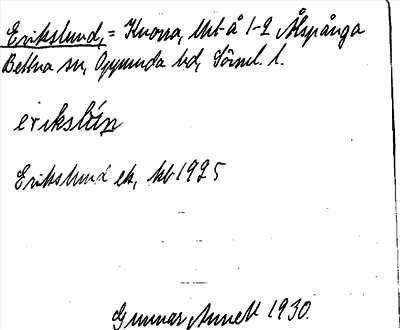 Erikslund, = Knorra, Utt å 1-2 Ålspånga
Bettna sn, Oppunda hd, Sörml. l.
erikslún
Erikslund ek, kb 1925
Gunnar 1930.